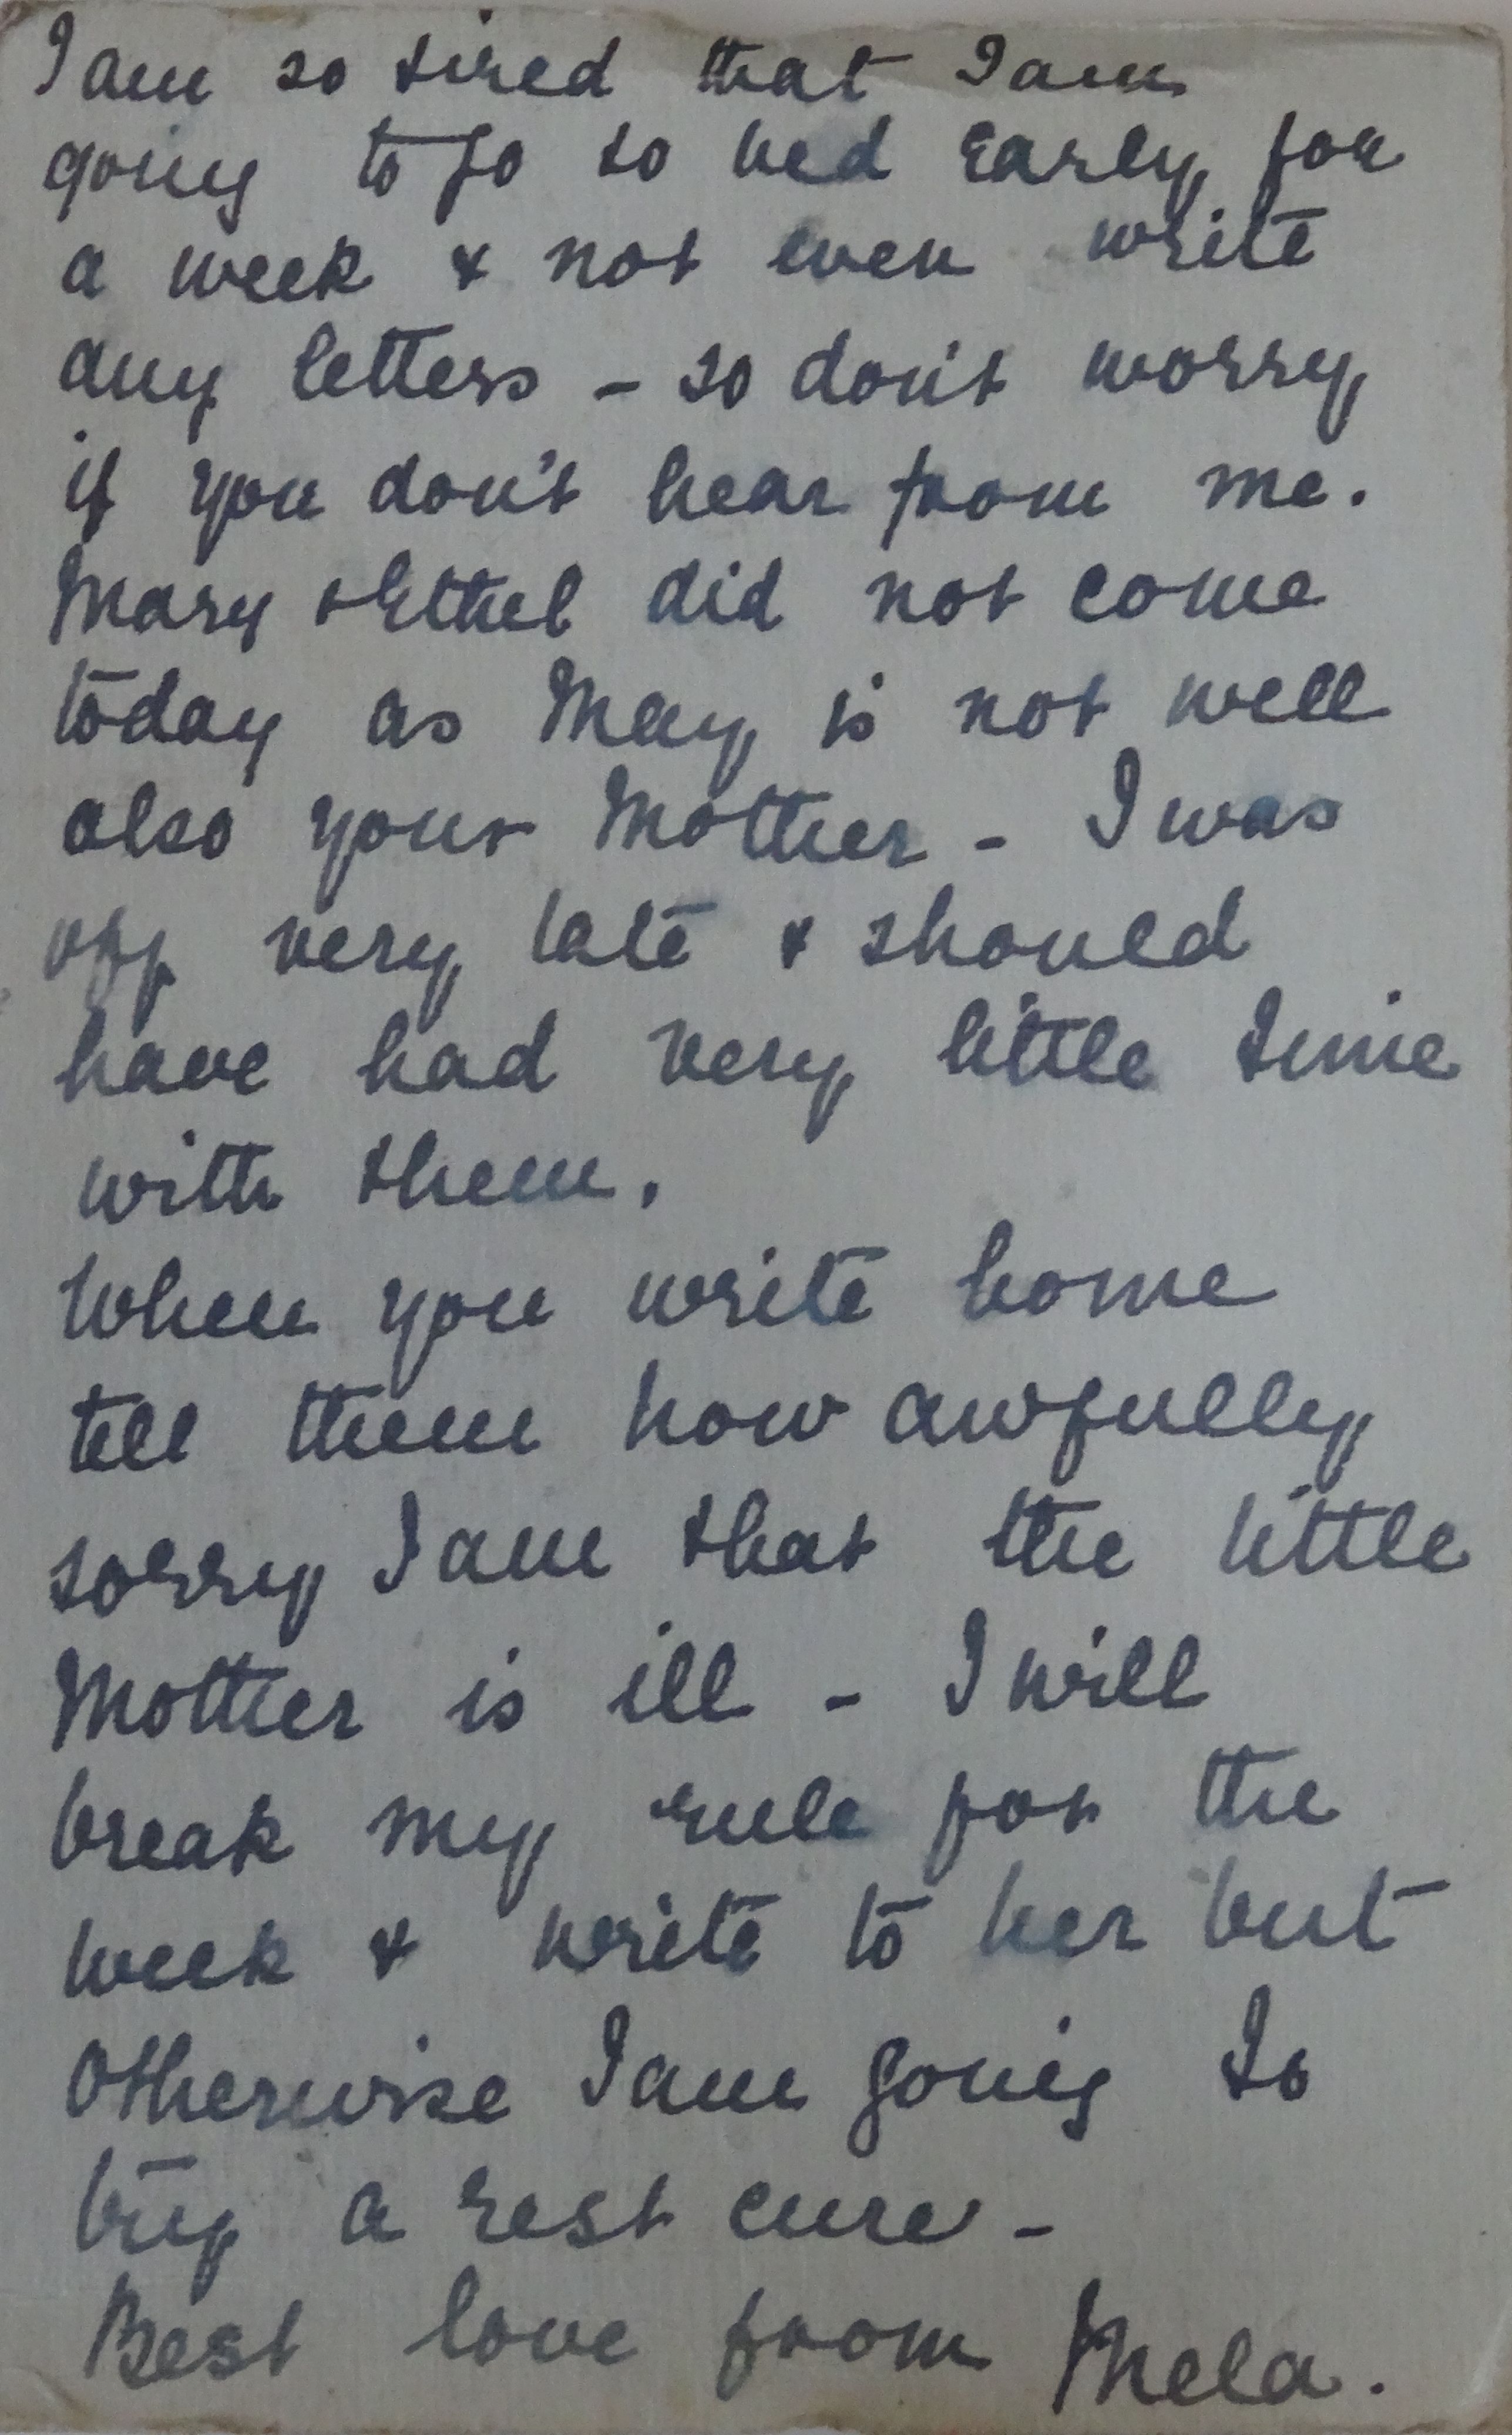 I am so tired that I am
going to go to bed early for
a week & not even write
any letters - so don't worry
if you don't hear from me.
Mary & Ethel did not come
today as May is not well
also your Mother - I was
off very late & should
have had very little time
with them.
When you write home
tell them how awfully
sorry I am that the little
Mother is ill - I will
break my rule for the
week & write to her but
otherwise I am going to
try a rest cure -
Best love from Mela.